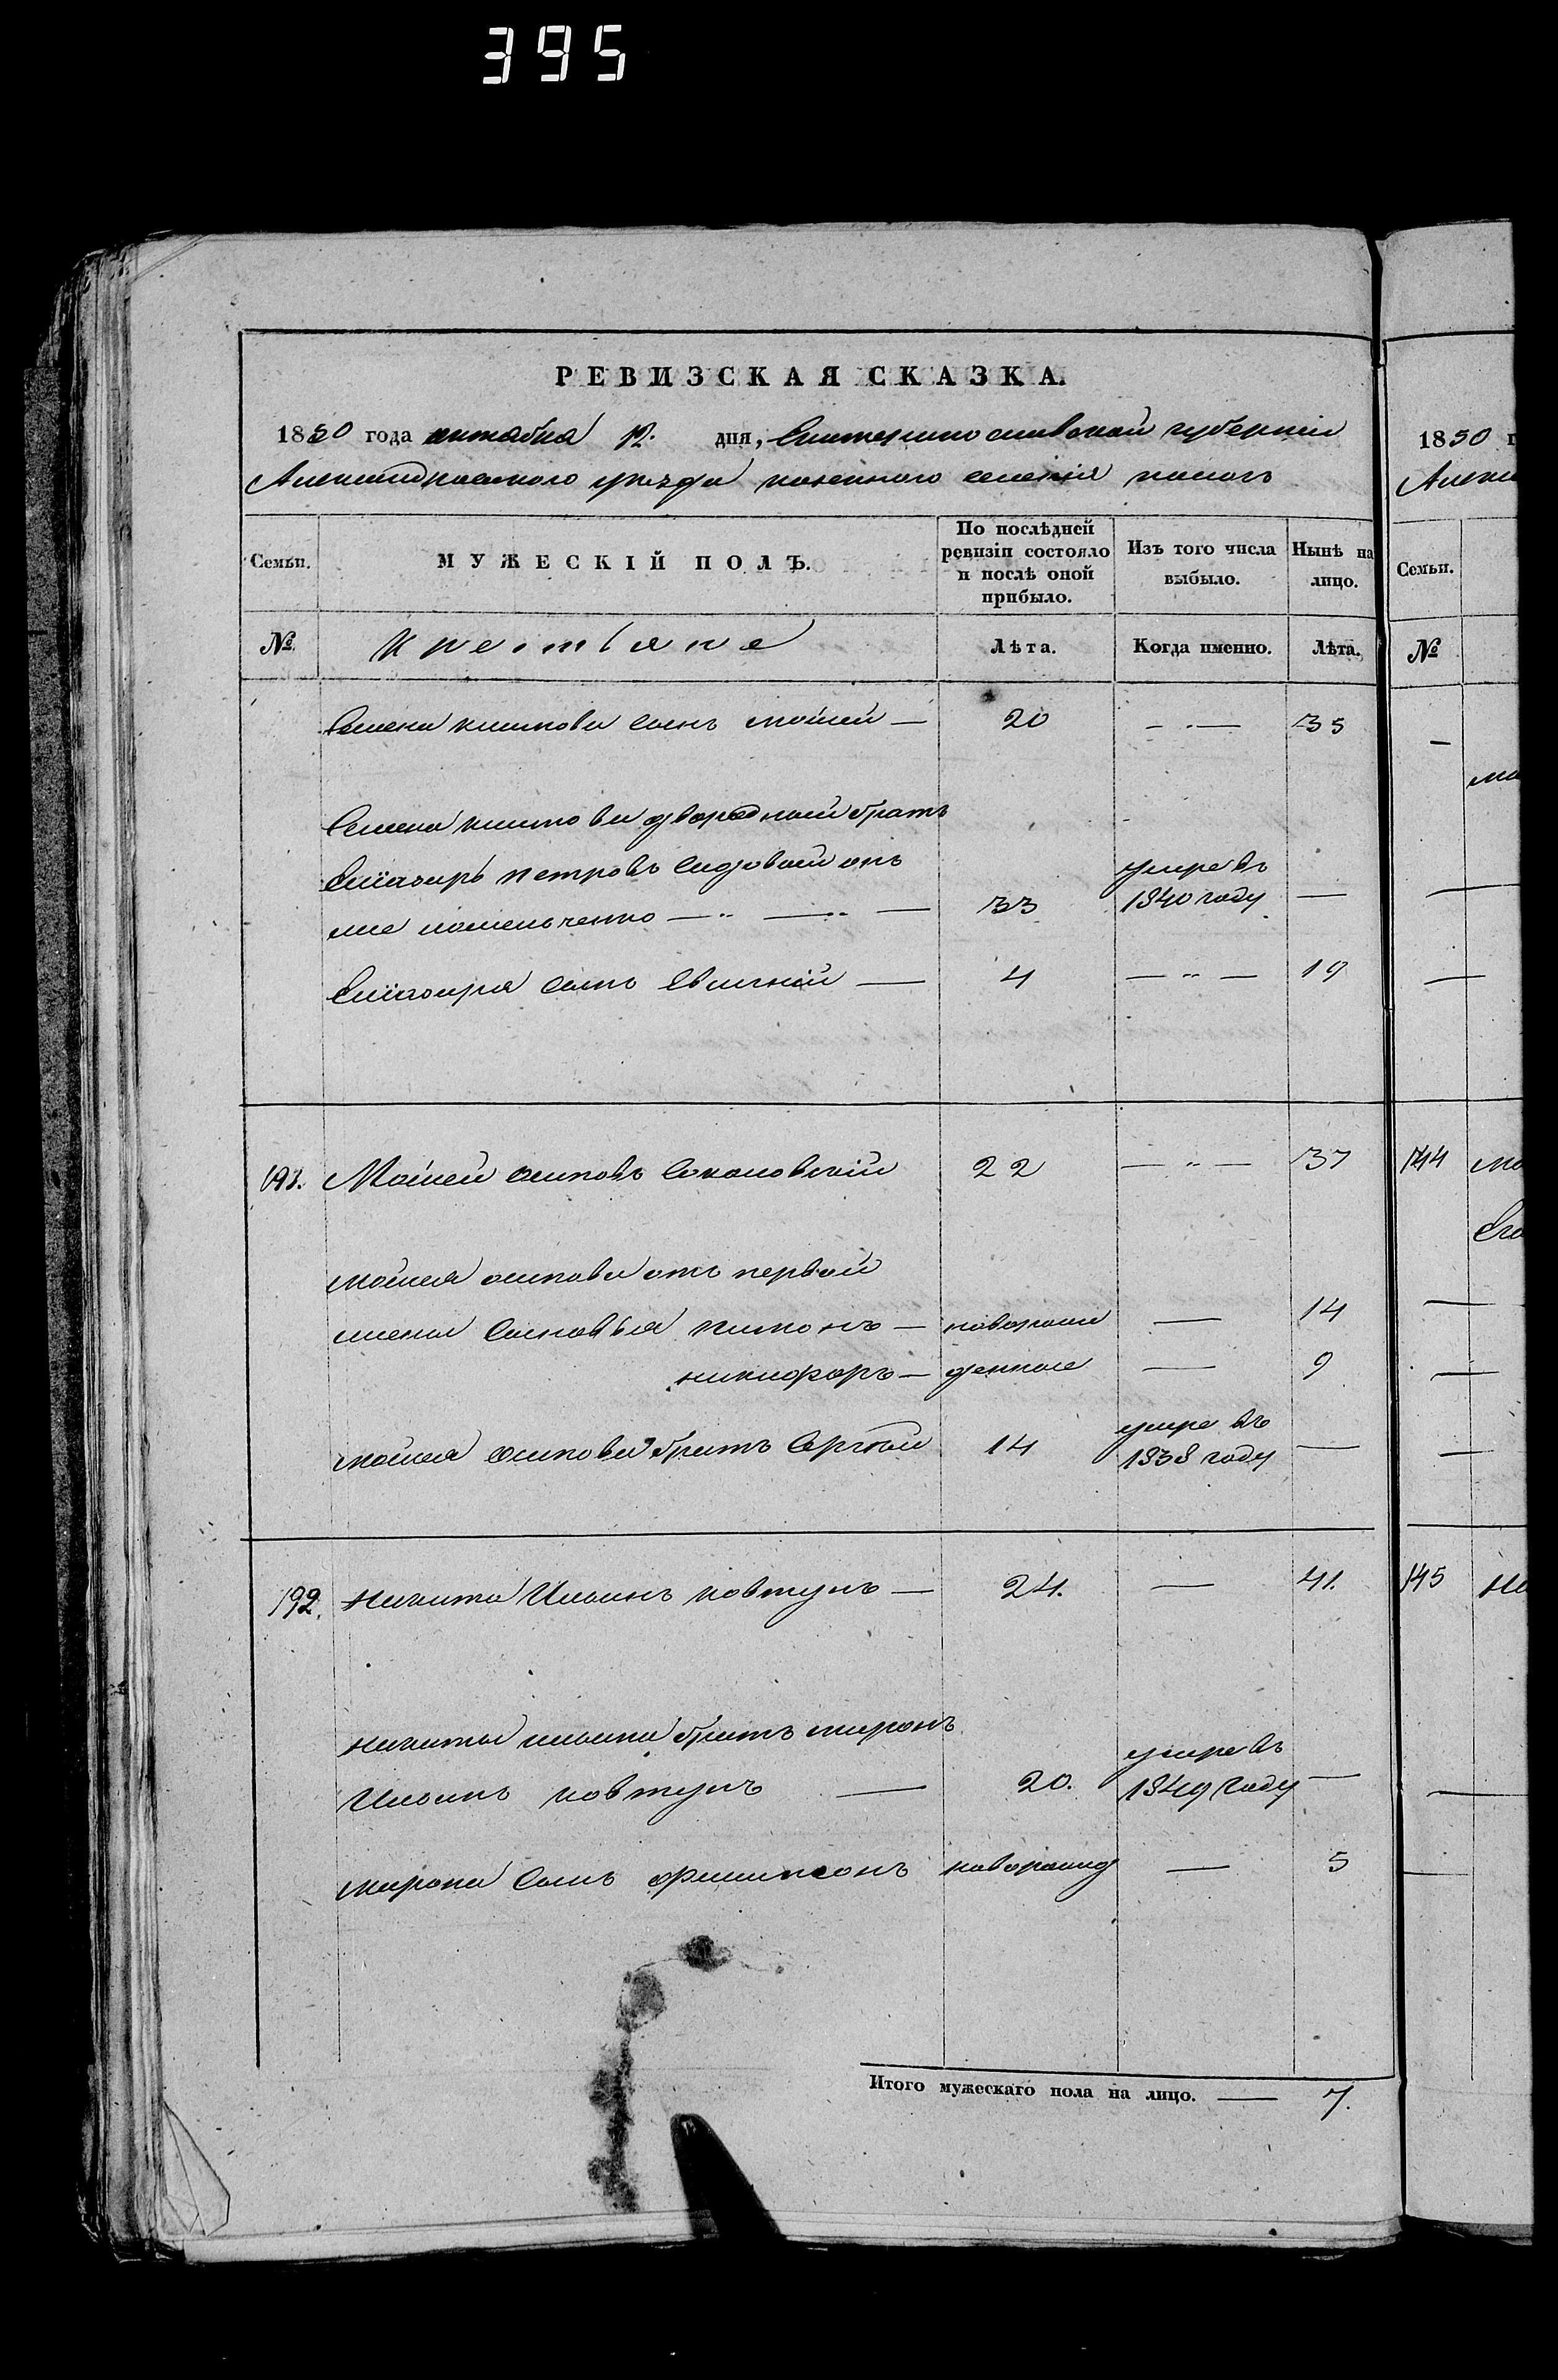 395
РЕВИЗСКАЯ СКАЗКА.
1850 года октября 12. дня, Екатеринославской губернiи
Александровскаго уѣзда казеннаго селенiя
Семьи. МУЖЕСКІЙ ПОЛЪ. По послѣдней ревизіи состояло и послѣ оной прибыло. Изъ того числа выбыло. Нынѣ на лицо.
№ Крестьяне Лѣта. Когда именно. Лѣта.
Семена сынъ моисей — 20 — 35
Семена двородный братъ
петровъ онъ умре въ
же 33 1840 году —
сынъ Евгений — 4 — „ — 19
191. Моисей осиповъ Соколовскiй 22 — „ — 37
моисея осипова отъ первой
жены сыновья — новорож — 14
никифоръ — денные — 9
моисея осипова братъ Сергѣй 14 умре въ 1838 году —
192. никита Ильинъ ковтунъ — 24. — 41.
никиты ильина братъ миронъ
Ильинъ ковтунъ — 20. умре въ 1849 году —
мирона сынъ новорожд — 5
Итого мужескаго пола на лицо. — 7.
1850 г
Семьи.
№
144
145